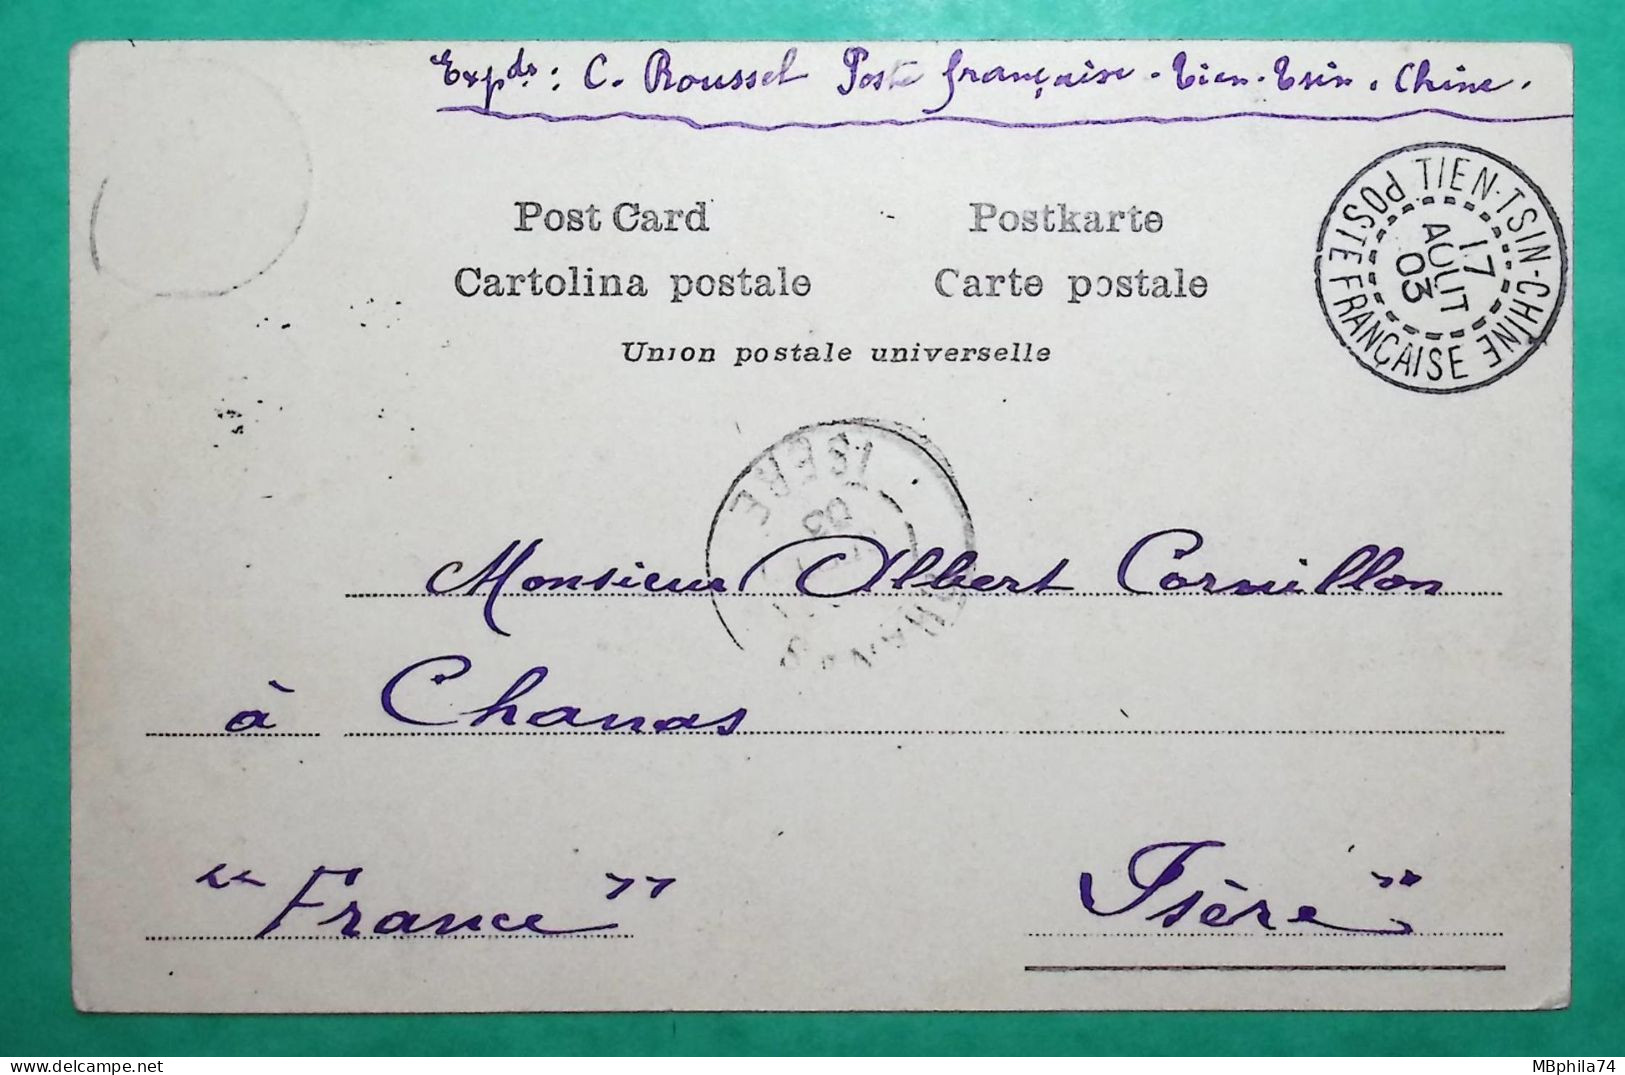 Expds: C. Roussel Poste française - Tien-Tsin. Chine.
Post Card Postkarte
Cartolina postale Carte postale
Union postale universelle
TIEN-TSIN-CHINE
17
AOUT
03
POSTE FRANÇAISE
ISERE
03
Monsieur Albert Cornillon
à Chanas
"France" Isère"
delcampe.net
MBphila74